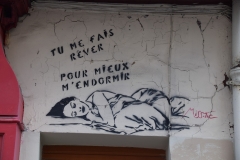 TU ME FAIS
RÊVER
POUR MIEUX
M'ENDORMIR